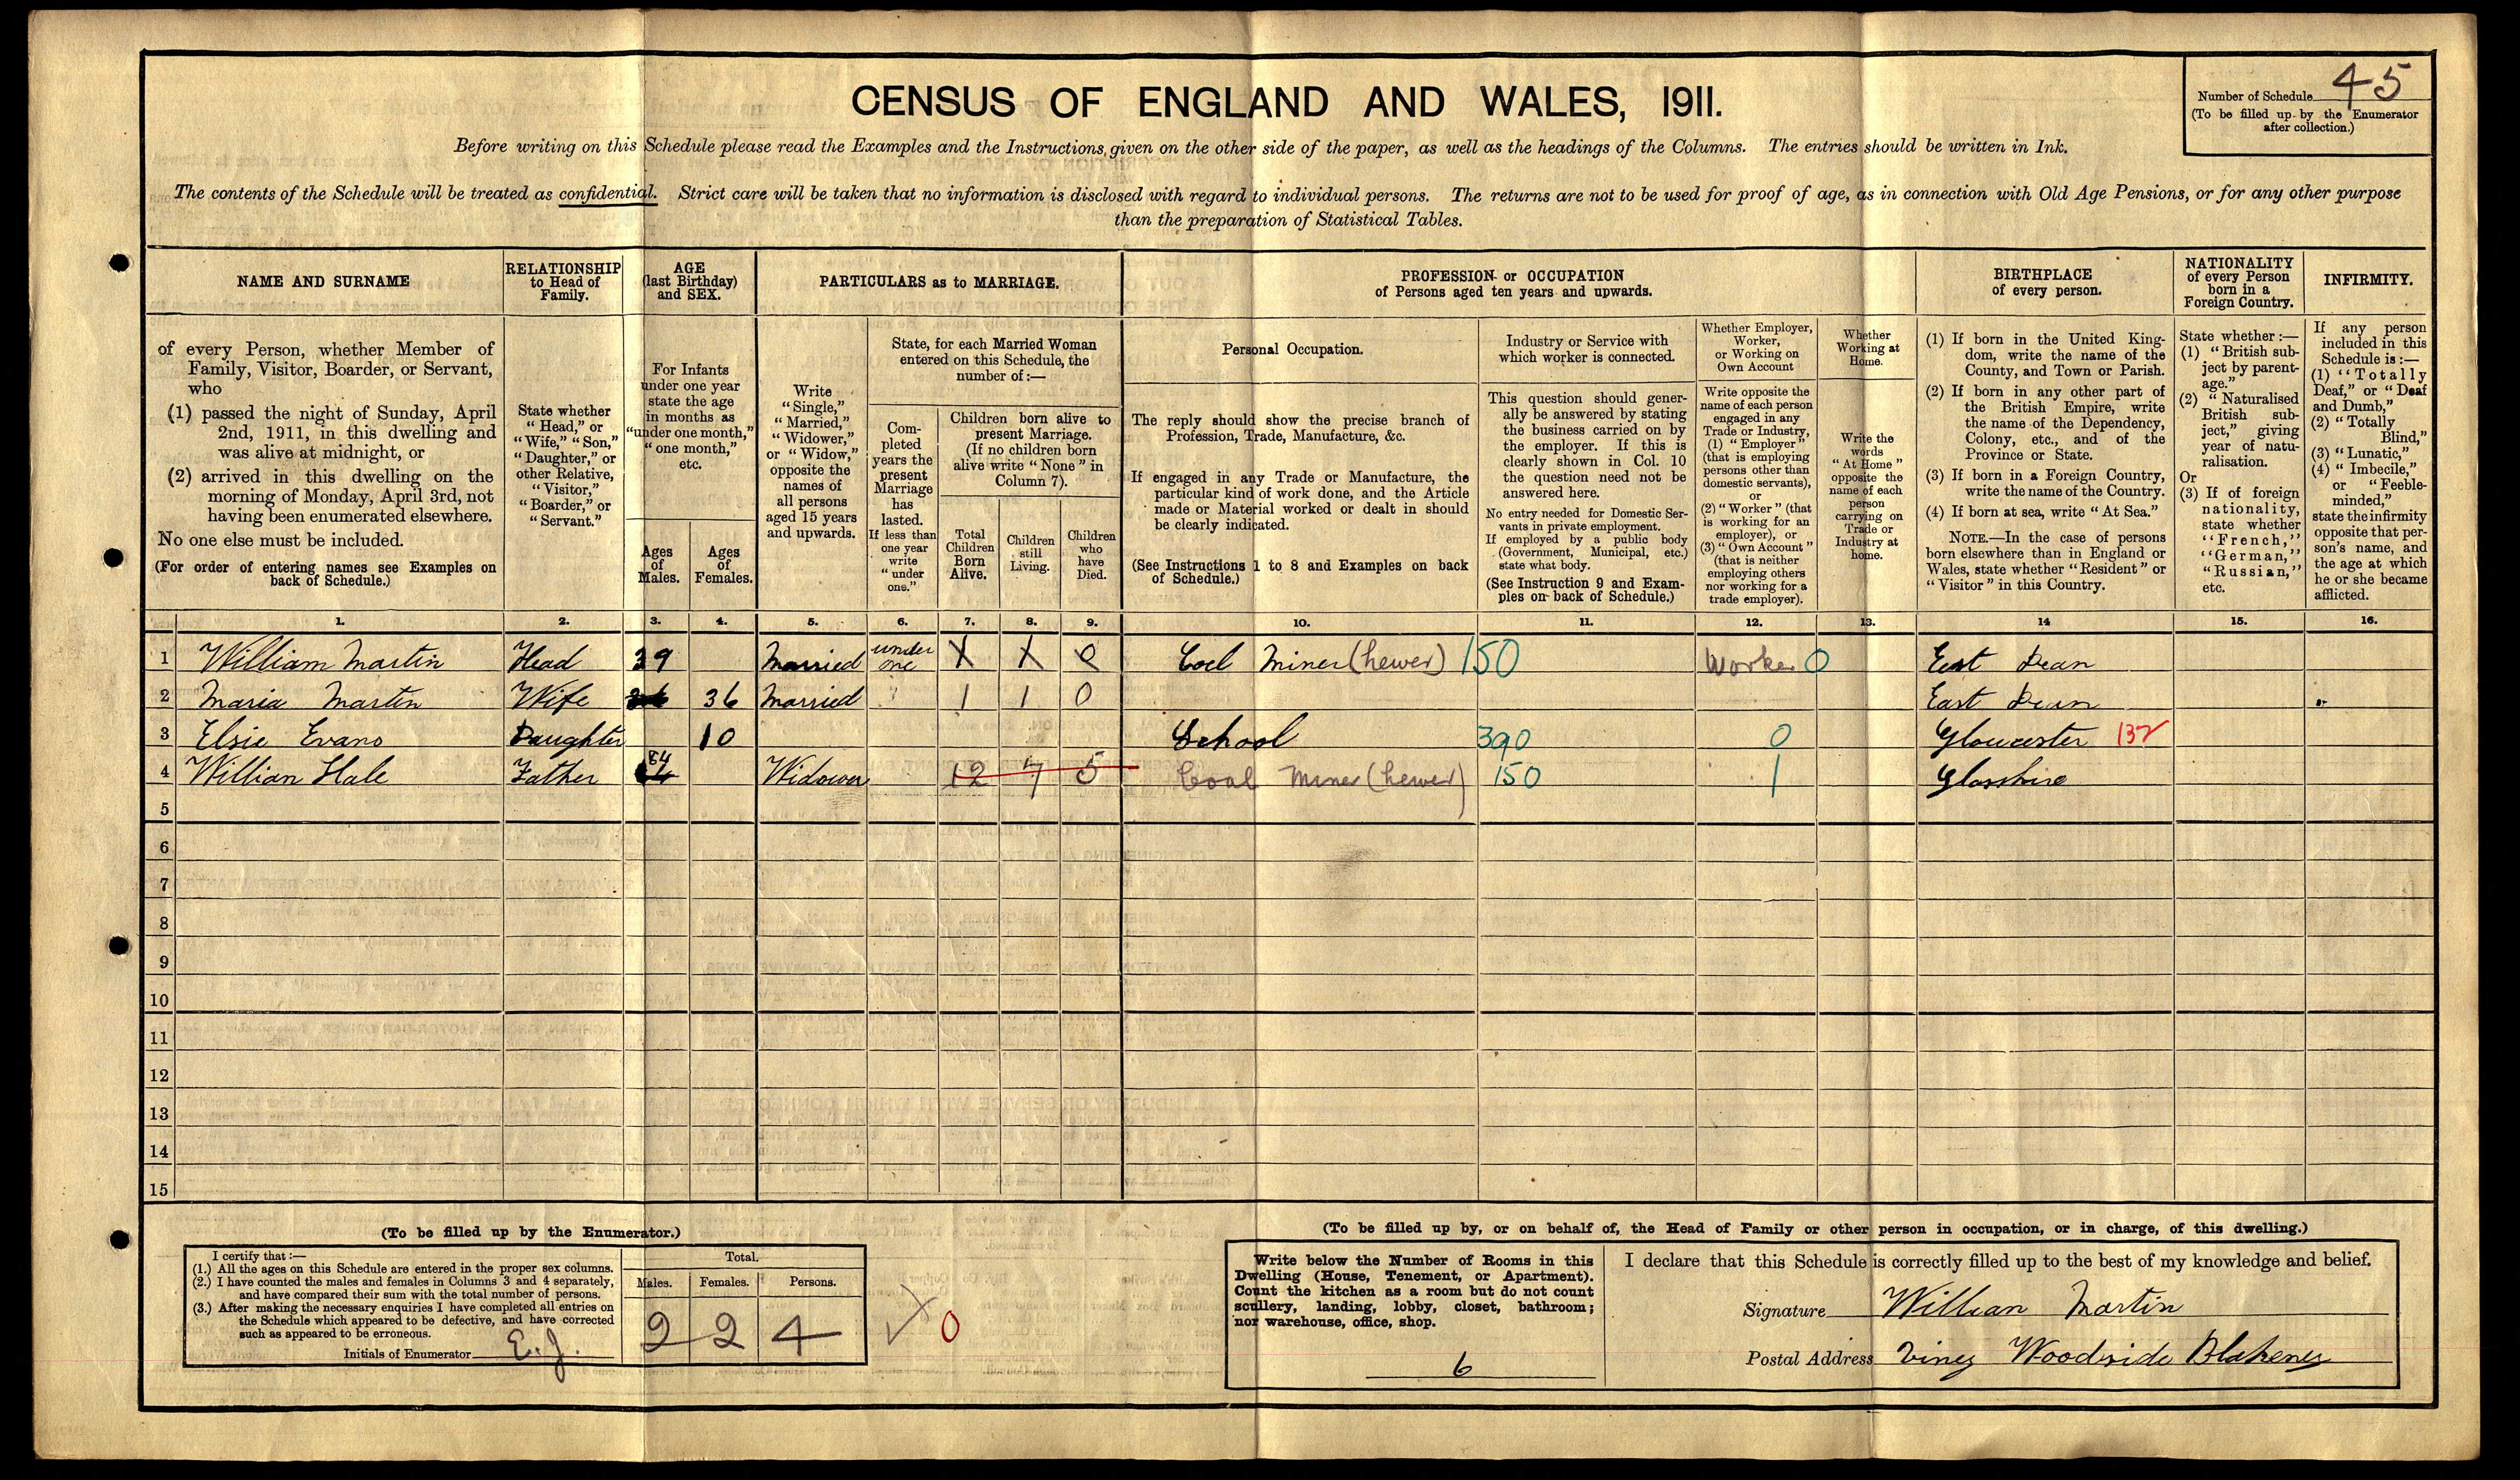 CENSUS OF ENGLAND AND WALES, 1911.
Number of Schedule 45
(To be filled up by the Enumerator
after collection.)
Before writing on this Schedule please read the Examples and the Instructions given on the other side of the paper, as well as the headings of the Columns. The entries should be written in Ink.
The contents of the Schedule will be treated as confidential. Strict care will be taken that no information is disclosed with regard to individual persons. The returns are not to be used for proof of age, as in connection with Old Age Pensions, or for any other purpose
than the preparation of Statistical Tables.
NAME AND SURNAME
of every Person, whether Member of
Family, Visitor, Boarder, or Servant,
who
(1) passed the night of Sunday, April
2nd, 1911, in this dwelling and
was alive at midnight, or
(2) arrived in this dwelling on the
morning of Monday, April 3rd, not
having been enumerated elsewhere.
No one else must be included.
(For order of entering names see Examples on
back of Schedule.)
RELATIONSHIP
to Head of
Family.
State whether
"Head," or
"Wife," "Son,"
"Daughter," or
other Relative,
"Visitor,"
"Boarder," or
"Servant."
AGE
(last Birthday)
and SEX.
For Infants
under one year
state the age
in months as
"under one month,"
"one month,"
etc.
Ages
of
Males.
Ages
of
Females.
PARTICULARS as to MARRIAGE.
Write
"Single,"
"Married,"
"Widower,"
or "Widow,"
opposite the
names of
all persons
aged 15 years
and upwards.
State, for each Married Woman
entered on this Schedule, the
number of:—
Com-
pleted
years the
present
Marriage
has
lasted.
If less than
one year
write
"under
one."
Children born alive to
present Marriage.
(If no children born
alive write "None" in
Column 7).
Total
Children
Born
Alive.
Children
still
Living.
Children
who
have
Died.
PROFESSION or OCCUPATION
of Persons aged ten years and upwards.
Personal Occupation.
The reply should show the precise branch of
Profession, Trade, Manufacture, &c.
If engaged in any Trade or Manufacture, the
particular kind of work done, and the Article
made or Material worked or dealt in should
be clearly indicated.
(See Instructions 1 to 8 and Examples on back
of Schedule.)
Industry or Service with
which worker is connected.
This question should gener-
ally be answered by stating
the business carried on by
the employer. If this is
clearly shown in Col. 10
the question need not be
answered here.
No entry needed for Domestic Ser-
vants in private employment.
If employed by a public body
(Government, Municipal, etc.)
state what body.
(See Instruction 9 and Exam-
ples on back of Schedule.)
Whether Employer,
Worker,
or Working on
Own Account
Write opposite the
name of each person
engaged in any
Trade or Industry,
(1) "Employer"
(that is employing
persons other than
domestic servants),
or
(2) "Worker" (that
is working for an
employer), or
(3) "Own Account"
(that is neither
employing others
nor working for a
trade employer).
Whether
Working at
Home.
Write the
words
"At Home"
opposite the
name of each
person
carrying on
Trade or
Industry at
home.
BIRTHPLACE
of every person.
(1) If born in the United King-
dom, write the name of the
County, and Town or Parish.
(2) If born in any other part of
the British Empire, write
the name of the Dependency,
Colony, etc., and of the
Province or State.
(3) If born in a Foreign Country,
write the name of the Country.
(4) If born at sea, write "At Sea."
NOTE.—In the case of persons
born elsewhere than in England or
Wales, state whether "Resident" or
"Visitor" in this Country.
NATIONALITY
of every Person
born in a
Foreign Country.
State whether:—
(1) "British sub-
ject by parent-
age."
(2) "Naturalised
British sub-
ject," giving
year of natu-
ralisation.
Or
(3) If of foreign
nationality,
state whether
"French,"
"German,"
"Russian,"
etc.
INFIRMITY.
If any person
included in this
Schedule is:—
(1) "Totally
Deaf," or "Deaf
and Dumb,"
(2) "Totally
Blind,"
(3) "Lunatic,"
(4) "Imbecile,"
or "Feeble-
minded,"
state the infirmity
opposite that per-
son's name, and
the age at which
he or she became
afflicted.
1. 2. 3. 4. 5. 6. 7. 8. 9. 10. 11. 12. 13. 14 15. 16.
1 William Martin Head 39 Married under one X X 0 Coel Miner (hewer) 150 Worker 0 East Dean
2 Maria Martin Wife 36 Married 1 1 0 East Dean
3 Elsie Evans Daughter 10 School 390 0 Gloucester 132
4 William Hale Father 64 Widower 12 7 5 Coal Miner (hewer) 150 1 Glosshire
5
6
7
8
9
10
11
12
13
14
15
(To be filled up by the Enumerator.)
I certify that:—
(1.) All the ages on this Schedule are entered in the proper sex columns.
(2.) I have counted the males and females in Columns 3 and 4 separately,
and have compared their sum with the total number of persons.
(3.) After making the necessary enquiries I have completed all entries on
the Schedule which appeared to be defective, and have corrected
such as appeared to be erroneous.
Initials of Enumerator E.J.
Total.
Males. Females. Persons.
2 2 4
0
(To be filled up by, or on behalf of, the Head of Family or other person in occupation, or in charge, of this dwelling.)
Write below the Number of Rooms in this
Dwelling (House, Tenement, or Apartment).
Count the kitchen as a room but do not count
scullery, landing, lobby, closet, bathroom;
nor warehouse, office, shop.
6
I declare that this Schedule is correctly filled up to the best of my knowledge and belief.
Signature William Martin
Postal Address Viney Woodside Blakeney